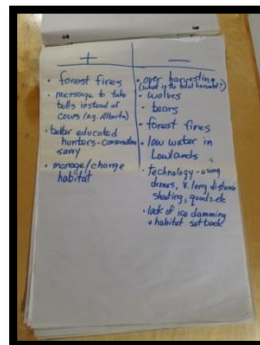 +
• forest fires
• message to take
bulls instead of
cows (e.g. Alberta)
• better educated
hunters - conservation
savvy
• manage/change
habitat
—
• over harvesting
(what is the total harvest?)
• wolves
• bears
• forest fires
• low water in
Lowlands
• technology - using
drones, v. long distance
shooting, quads etc
• lack of ice damming
+ habitat set back